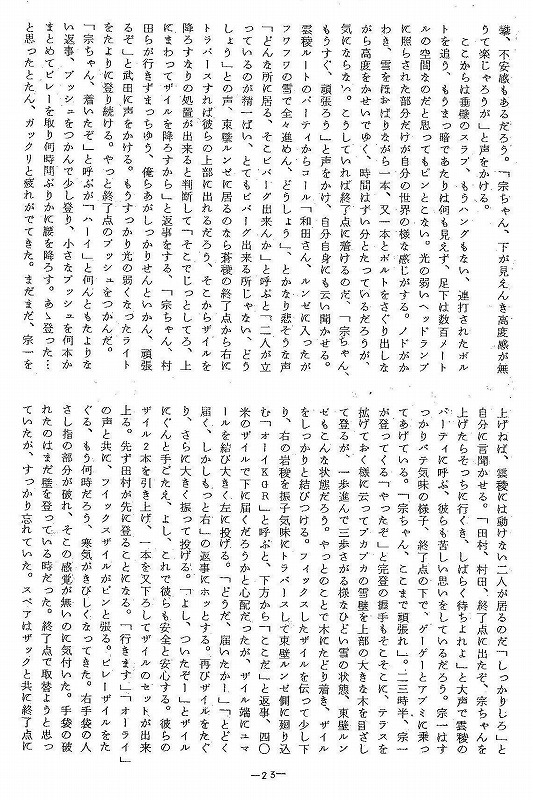 蟻、不安感もあるだろう。「宗ちゃん、下が見えんき高度感が無
うて楽じゃろうが」と声をかける。
ここからは垂壁のスラブ、もうハングもない、連打されたボル
トを追う、もうまっ暗であたりは何も見えず、足下は数百メート
ルの空間なのだと思ってもピンとこない。光の弱いヘッドランプ
に照らされた部分だけが自分の世界の様な感じがする。ノドがか
わき、雪をほおばりながら一本、又一本とボルトをさぐり出しな
がら高度をかせいでゆく、時間はずい分とたっているだろうが、
気にならない。こうしていれば終了点に着けるのだ、「宗ちゃん、
もうすぐ、頑張ろう」と声をかけ、自分自身にも云い聞かせる。
雲稜ルートのパーティからコール「和田さん、ルンゼに入ったが
フワフワの雪で全々進めん、どうしょう」、とかなり悲そうな声
「どんな所に居る、そこビバーグ出来んか」と呼ぶと「二人が立
っているのが精一ぱい、とてもビバーグ出来る所じゃない、どう
しょう」との声、東壁ルンゼに居るのなら蒼稜の終了点から右に
トラバースすれば彼らの上部に出れるだろう、そこからザイルを
降ろすなりの処置が出来ると判断して「そこでじっとしてろ、上
にまわってザイルを降ろすから」と返事をする、「宗ちゃん、村
田らが行きずまっちゅう、俺らあがしっかりせんといかん、頑張
るぞ」と武田に声をかける。もうすっかり光の弱くなったライト
をたよりに登り続ける。やっと終了点のブッシュをつかんだ。
「宗ちゃん、着いたぞ」と呼ぶが「ハーイ」と何んともたよりな
い返事、ブッシュをつかんで少し登り、小さなブッシュを何本か
まとめてビレーを取り何時間ぶりかに腰を降ろす。あゝ登った…
と思ったとたん、ガックリと疲れがでてきた。まだまだ、宗一を
上げねば、雲稜には動けない二人が居るのだ「しっかりしろ」と
自分に言聞かせる。「田村、村田、終了点に出たぞ、宗ちゃんを
上げたらそっちに行くき、しばらく待ちよれよ」と大声で雲稜の
パーティに呼ぶ、彼らも苦しい思いをしているだろう。宗一はす
っかりバテ気味の様子、終了点の下で、ゲーゲーとアブミに乗っ
てあげている。「宗ちゃん、ここまで頑張れ」。二三時半、宗一
が登ってくる「やったぞ」と完登の握手もそこそこに、テラスを
拡げておく様に云ってプカプカの雪壁を上部の大きな木を目ざし
て登るが、一歩進んで三歩さがる様なひどい雪の状態、東壁ルン
ゼもこんな状態だろう。やっとのことで木にたどり着き、ザイル
をしっかりと結びつける。フィックスしたザイルを伝って少し下
り、右の岩稜を振子気味にトラバースして東壁ルンゼ側に廻り込
む「オーイKGR」と呼ぶと、下方から「ここだ」と返事、四〇
米のザイルで下に届くだろうかと心配だったが、ザイル端にユマ
ールを結び大きく左に投げる。「どうだ、届いたかー」「とどく
届く、しかしもっと右」の返事にホッとする。再びザイルをたぐ
り、さらに大きく振って投げる。「よし、ついたぞー」とザイル
にぐんと手ごたえ、よし、これで彼らも安全と安心する。彼らの
ザイル2本を引き上げ、一本を又下ろしてザイルのセットが出来
上る。先ず田村が先に登ることになる。「行きます」「オーライ」
の声と共に、フィックスザイルがピンと張る。ビレーザイルをた
ぐる、もう何時だろう、寒気がきびしくなってきた。右手袋の人
さし指の部分が破れ、そこの感覚が無いのに気付いた。手袋の破
れたのはまだ壁を登っている時だった。終了点で取替ようと思っ
ていたが、すっかり忘れていた。スペアはザックと共に終了点に
—23—